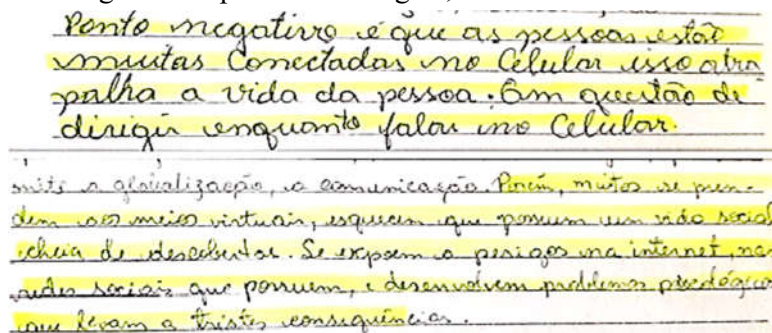 Ponto negativo é que as pessoas estão
muitas Conectadas no Celular isso atra
palha a vida da pessoa. Em questão de
dirigir enquanto falar no Celular.
mite a globalização, a comunicação. Porém, muitos se pren-
dem aos meios virtuais, esquecem que possuem um vida social
cheia de descobertas. Se expoem a perigos na internet, nas
redes sociais que possuem, e desenvolvem problemas
que levam a tristes consequências.